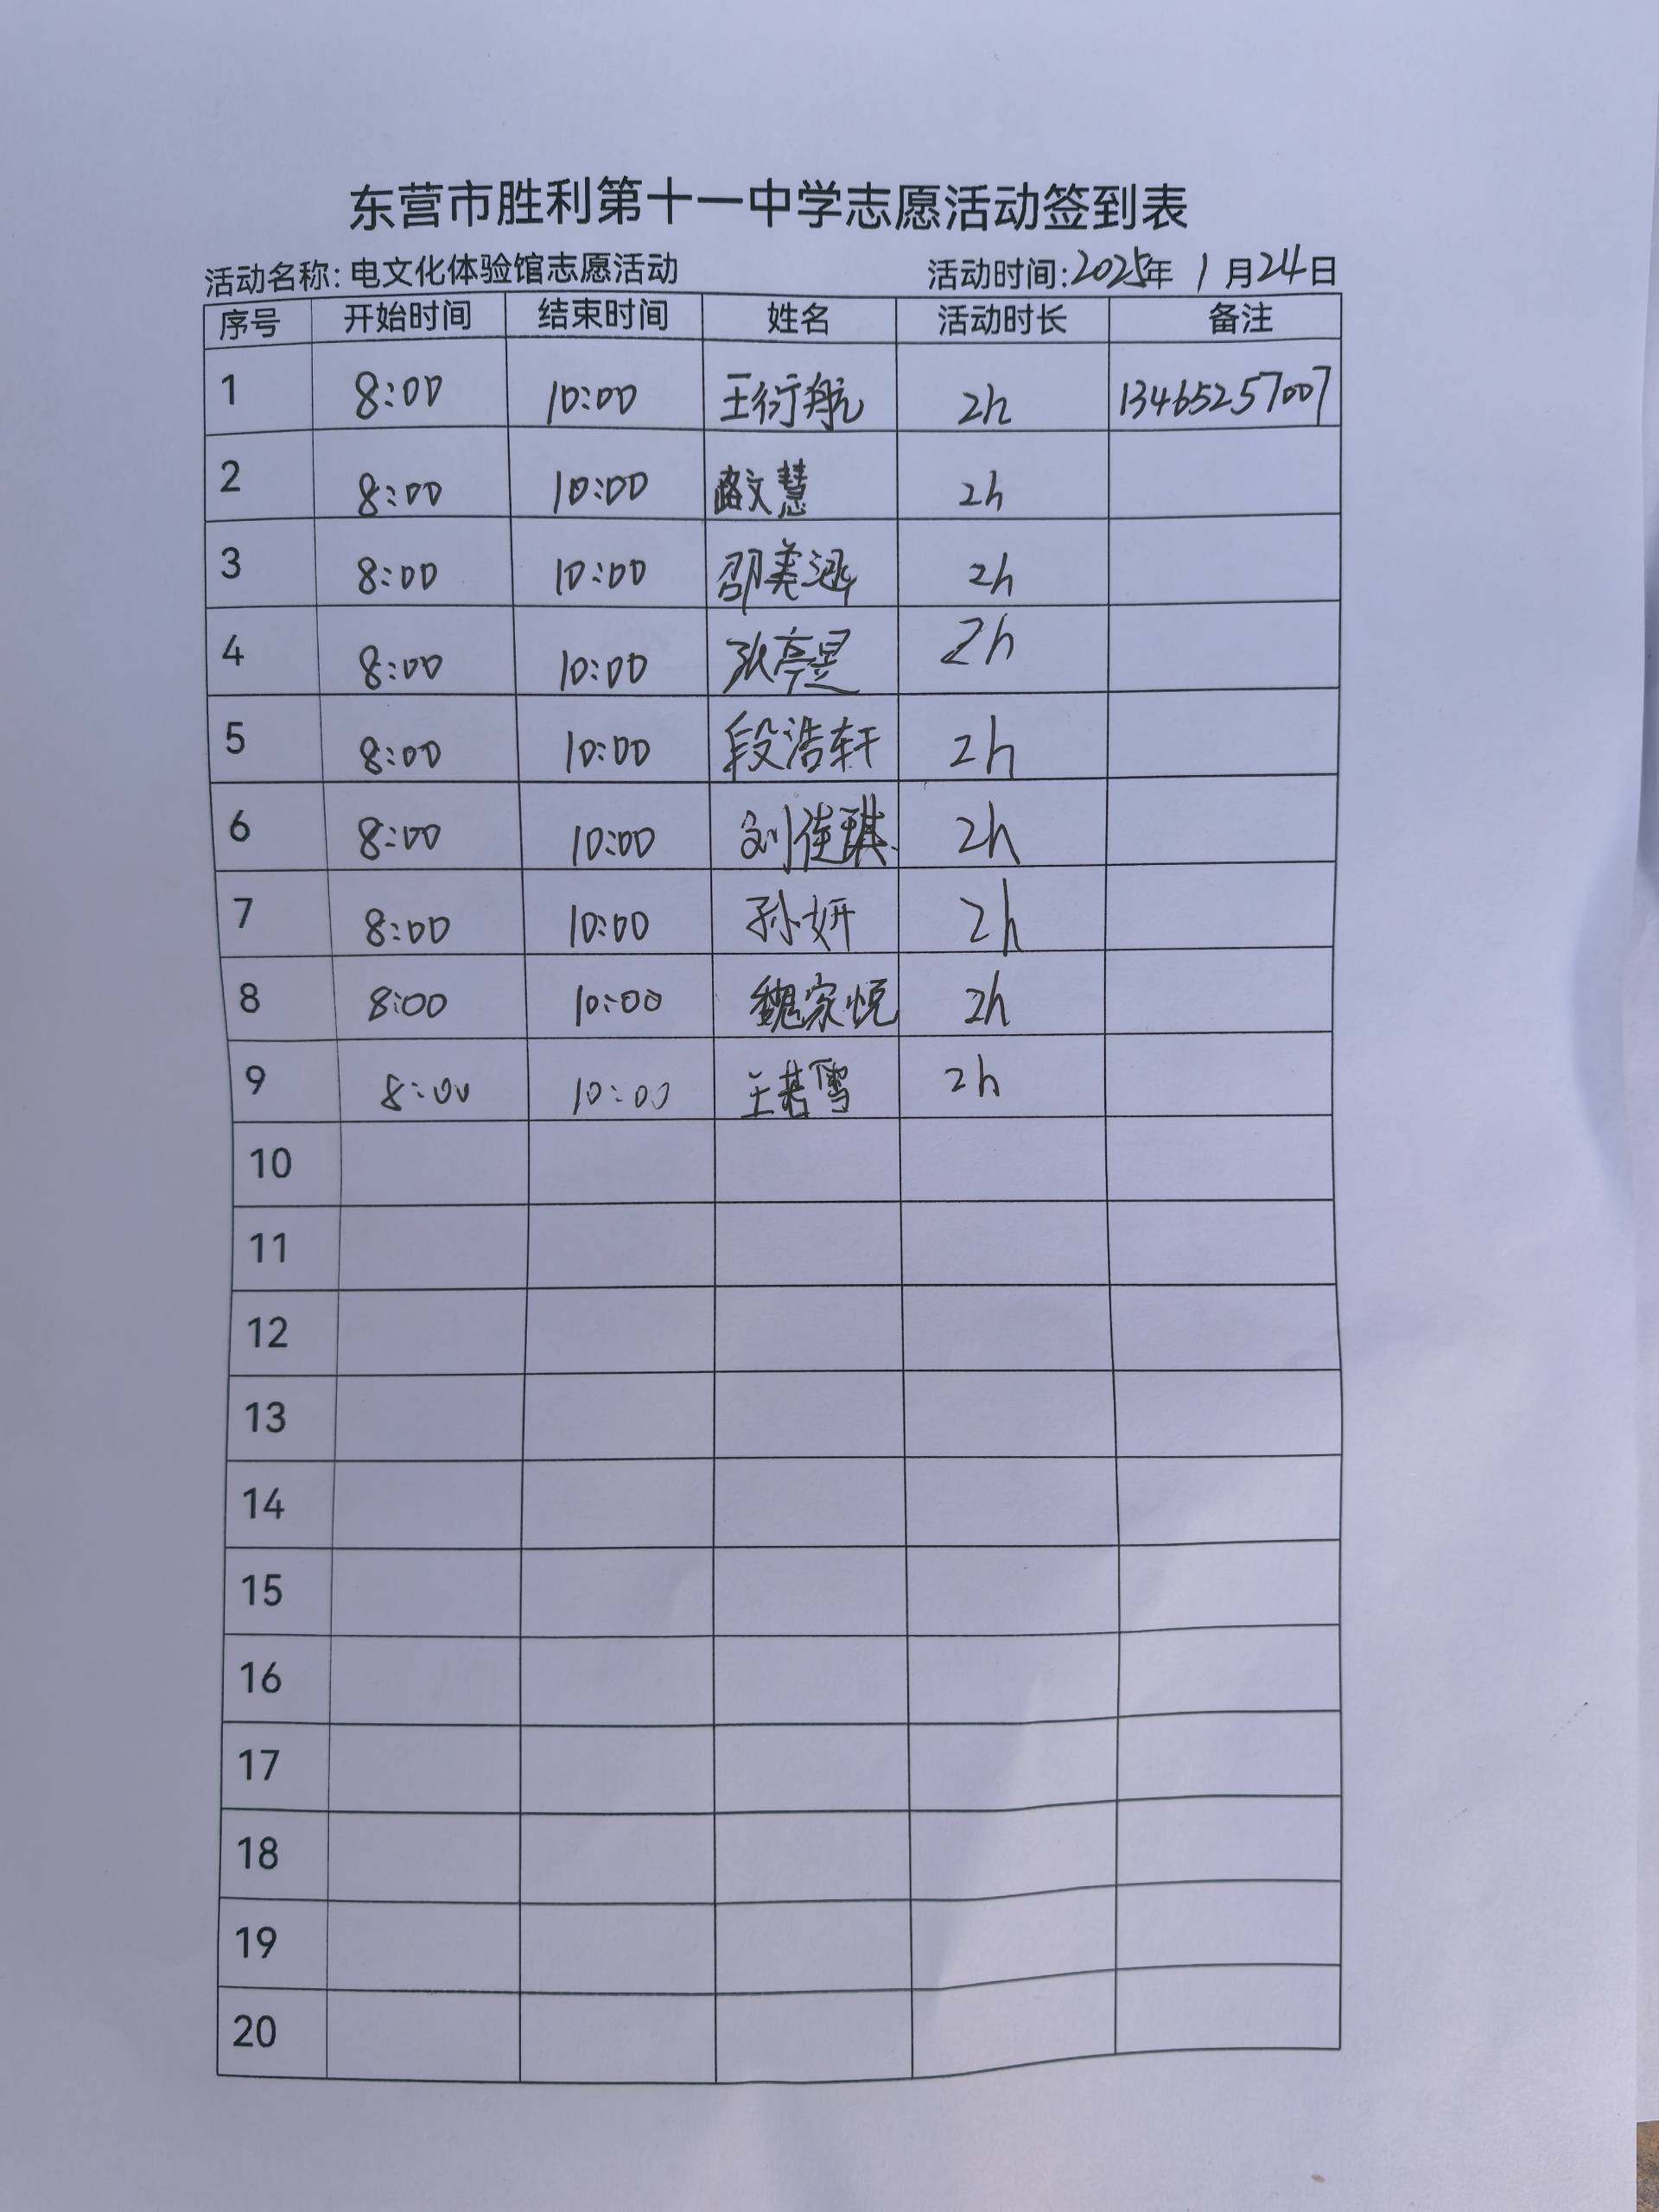 东营市胜利第十一中学志愿活动签到表
活动名称: 电文化体验馆志愿活动 活动时间:2025年 1月24日
序号 开始时间 结束时间 姓名 活动时长 备注
1 8:00 10:00 王衍航 2h 13465257007
2 8:00 10:00 路文慧 2h
3 8:00 10:00 邵美涵 2h
4 8:00 10:00 张亭昱 2h
5 8:00 10:00 段浩轩 2h
6 8:00 10:00 刘佳琪 2h
7 8:00 10:00 孙妍 2h
8 8:00 10:00 魏家悦 2h
9 8:00 10:00 王若雪 2h
10
11
12
13
14
15
16
17
18
19
20